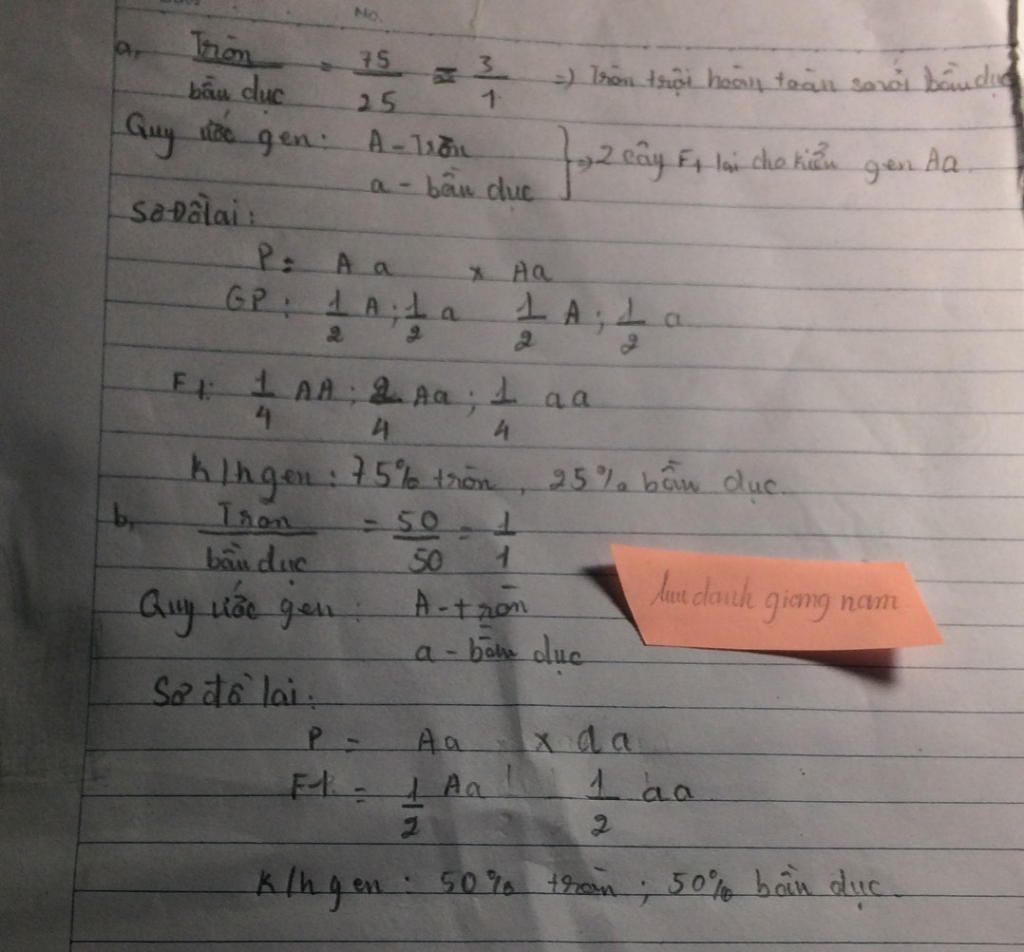 No.
a, Tròn / bầu dục = 75/25 = 3/1 => Tròn trội hoàn toàn so với bầu dục
Quy ước gen: A - Tròn
a - bầu dục } => 2 cây F1 lai cho kiểu gen Aa.
Sơ Đồ lai:
P = Aa x Aa
GP: 1/2 A; 1/2 a 1/2 A; 1/2 a
F1: 1/4 AA; 2/4 Aa; 1/4 aa
K/h gen: 75% tròn, 25% bầu dục.
b, Tròn / bầu dục = 50/50 = 1/1
Quy ước gen: A - tròn
a - bầu dục
lưu danh giang nam
Sơ đồ lai:
P = Aa x aa
F1 = 1/2 Aa 1/2 aa
K/h gen: 50% tròn; 50% bầu dục.